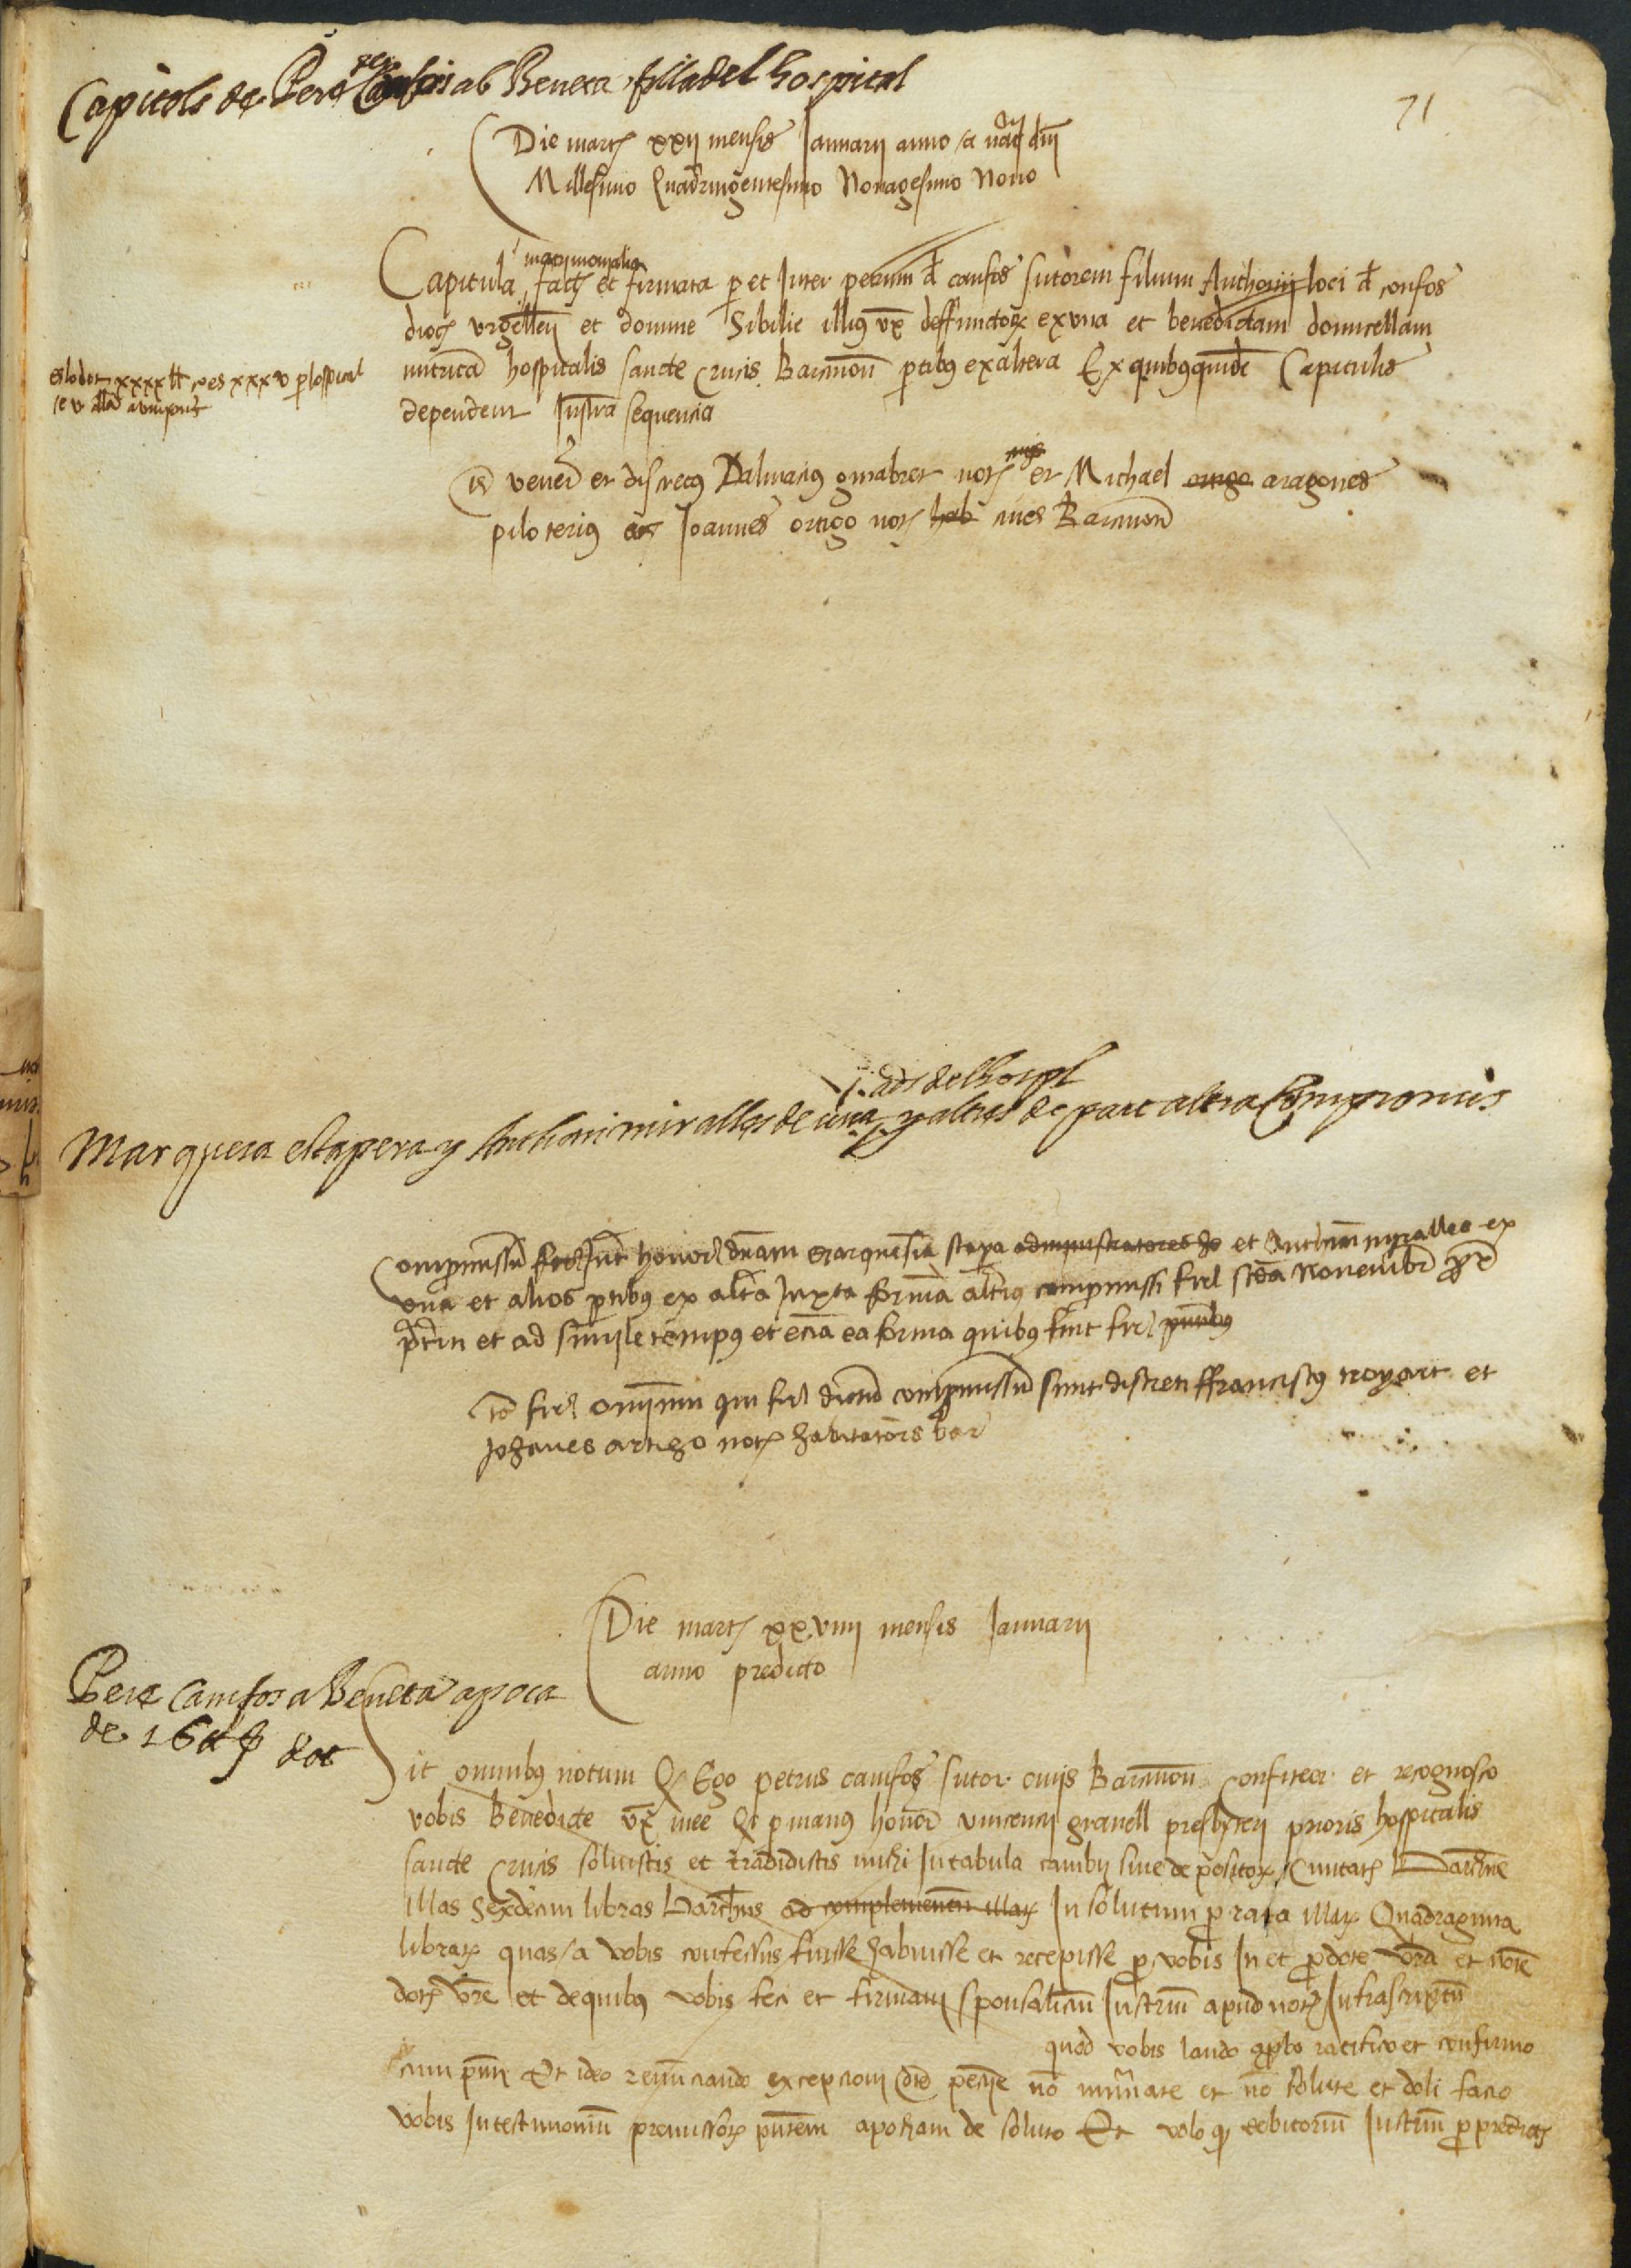 Capitols de Pere Canfos ab Beneta filla del hospital
71
Die martis xxij mensis Januarii anno a natte dni
Millesimo Quadringentesimo Nonagesimo Nono
Capitula matrimonialia facta et firmata per et Inter petrum de canfos sutorem filium Anthonij loci de confos
dioc urgellen et domine Sibilie illius ux deffunctorum ex una et benedictam domicellam
nutritam hospitalis sancte Crucis Barcinon partibus ex altera Ex quibusquidem Capitulis
dependent Instra sequencia
es lo dot xxxx ll ço es xxxv per lospital
e v ella
ts venerl et discretus Dalmacius ginabret nots et Michael ortigo aragones
piloterius ac Joannes ortigo nots hab cives Barcinon
v ads del hospl
Marquesa estapera y Anthoni miralles de una y altres de part altra Compromis
Compromissum inter honor dnam marquesiam stapera administratores et Anthonium myralles ex
una et alios partibus ex altera Juxta forma alterius compromissi firl Novembr
et ad simile tempus et ecia ea forma quibus fuit firl
ts firl omnium qui firl dictum compromissum sunt discreti ffranciscus trogart et
Johanes artigo nots habitatores bar
Die martis xxviiij mensis Januarii
anno predicto
Pere Canfos a Beneta apoca
de 16 ll dot
Sit omnibus notum Q Ego petrus canfos sutor civis Barcinon Confiteor et recognosco
vobis Benedicte ux mee Qt per manus honor vincencij granell presbyteri prioris hospitalis
sancte Crucis solvistis et tradidistis michi In tabula cambij sive depositorum Civitatis Barchne
illas Sexdecim libras Barchns ad complementum illarum In solutum prorata illarum Quadraginta
librarum quas a vobis confessus fuisse habuisse et recepisse per vobis In et pro dote vra et noie
dotis vre et de quibus vobis feci et firmavi sponsalicium Instrum apud nots Infrascriptum
quod vobis laudo approbo ratifico et confirmo
cum pnti Et ideo renunciando excepcioni dce peccunie no numerate et no solute et doli facio
vobis In testimonium premissorum pntem apocham de soluto Et volo q debitorium Instrum per predictas